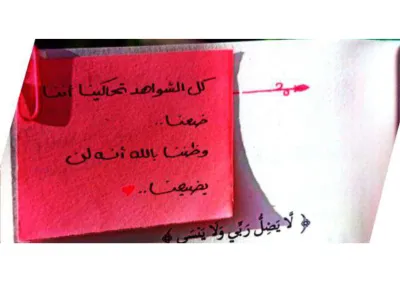 كل الشواهد تحاكينا أننا
ضعنا..
وظننا بالله أنه لن
يضيعنا..
﴿ لَّا يَضِلُّ رَبِّي وَلَا يَنسَى ﴾